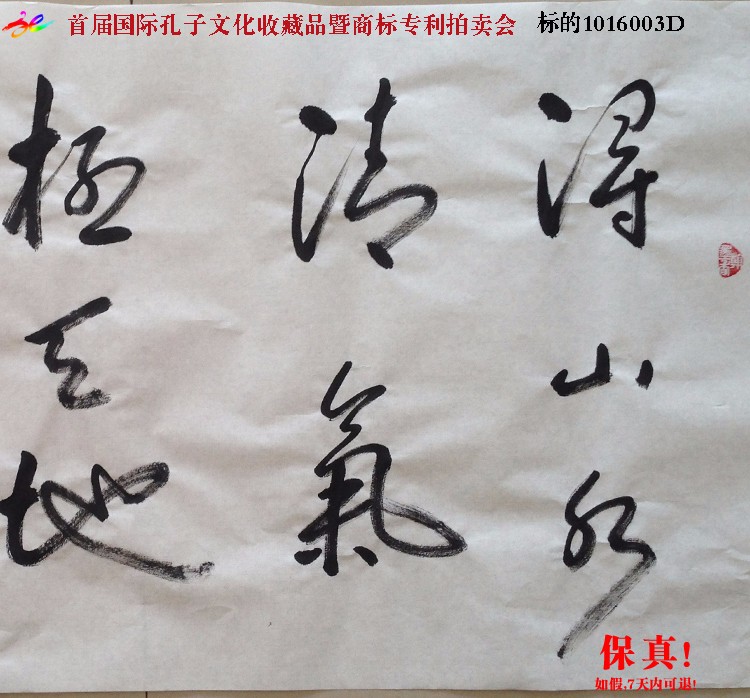 首届国际孔子文化收藏品暨商标专利拍卖会 标的1016003D
得山水
清氣
極天地
保真!
如假,7天内可退!